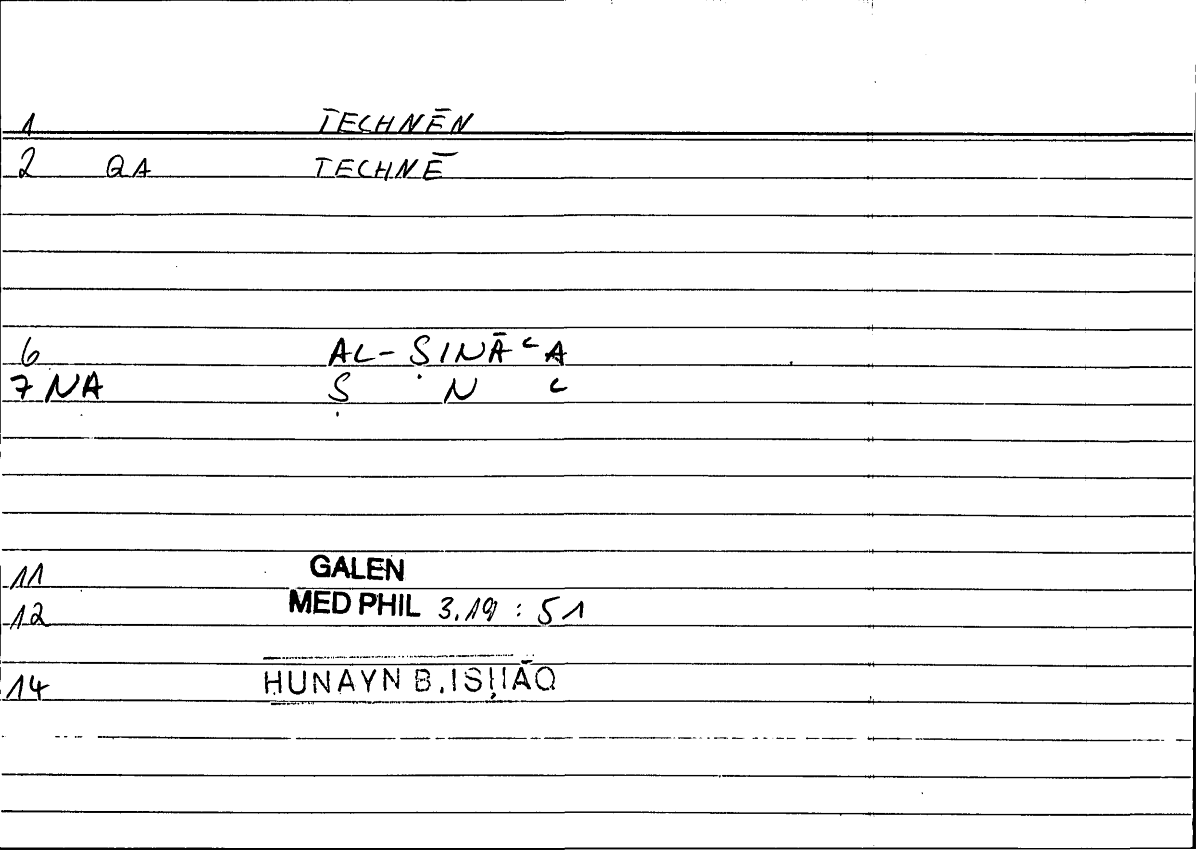 1 TECHNĒN
2 QA TECHNĒ
6 AL-ṢINĀʿA
7 NA Ṣ N ʿ
11 GALEN
12 MED PHIL 3.19 : 51
14 HUNAYN B. ISḤĀQ